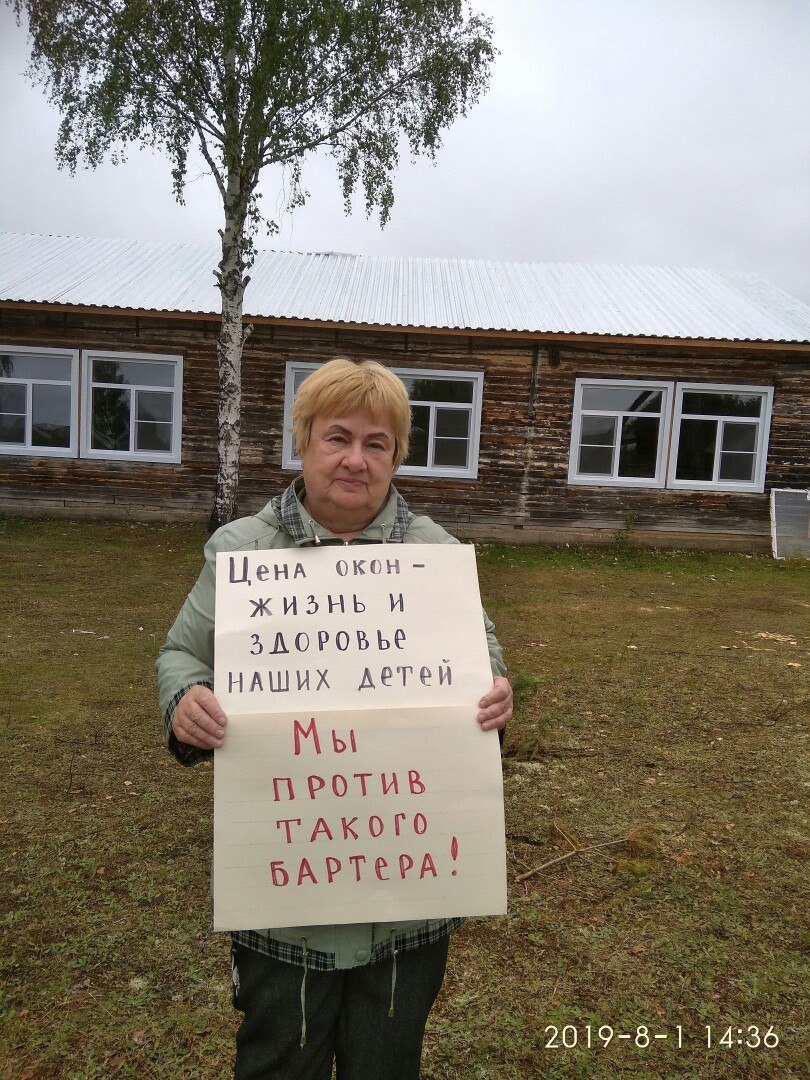 Цена окон -
жизнь и
здоровье
наших детей
Мы
против
такого
бартера!
2019-8-1 14:36